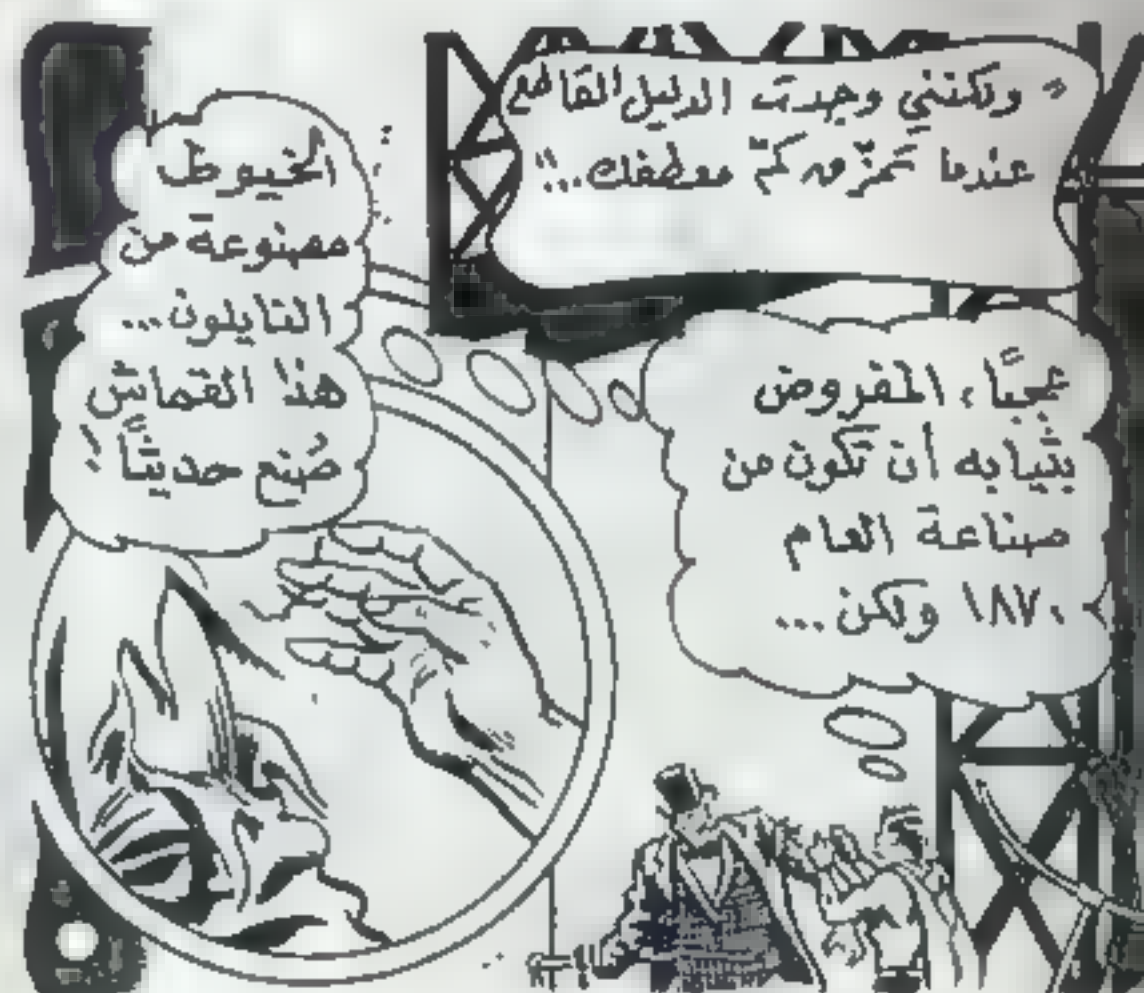 " ولكنني وجدت الدليل القاطع
عندما تمزّق كمّ معطفك..."
عجبًا، المفروض
بثيابه أن تكون من
صناعة العام
١٨٧٠ ولكن...
الخيوط
مصنوعة من
النايلون...
هذا القماش
صُنع حديثًا!